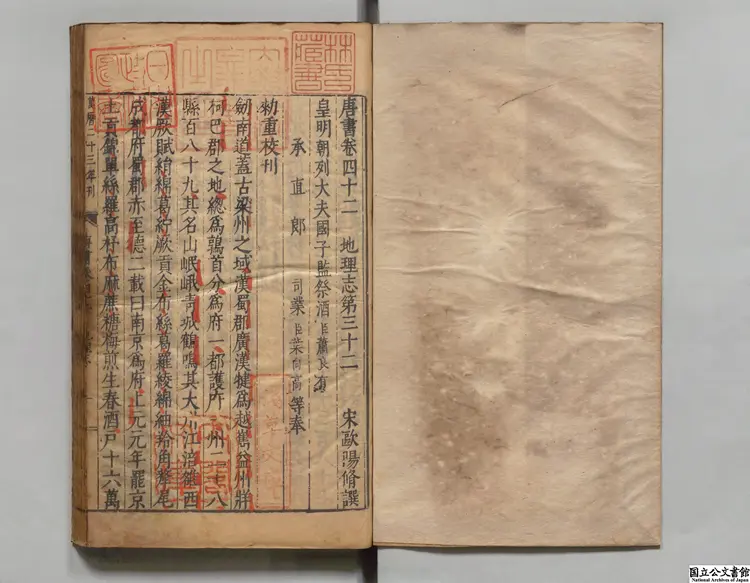 唐書卷四十二 地理志第三十二 宋歐陽脩譔
皇明朝列大夫國子監祭酒臣蕭良有
承直郎 司業臣葉向高等奉
勑重校刊
劒南道蓋古梁州之域漢蜀郡廣漢犍爲越嶲益州牂
柯巴郡之地總爲鶉首分爲府一都護府一州三十八
縣百八十九其名山岷峨青城鶴鳴其大川江涪雒西
漢厥賦絹綿葛紵厥貢金布絲葛羅綾綿紬羚角犛尾
成都府蜀郡赤至德二載曰南京爲府上元元年罷京
土貢錦單絲羅高杼布麻蔗糖梅煎生春酒戶十六萬
萬曆二十三年刊
林氏藏書
國立公文書館
National Archives of Japan